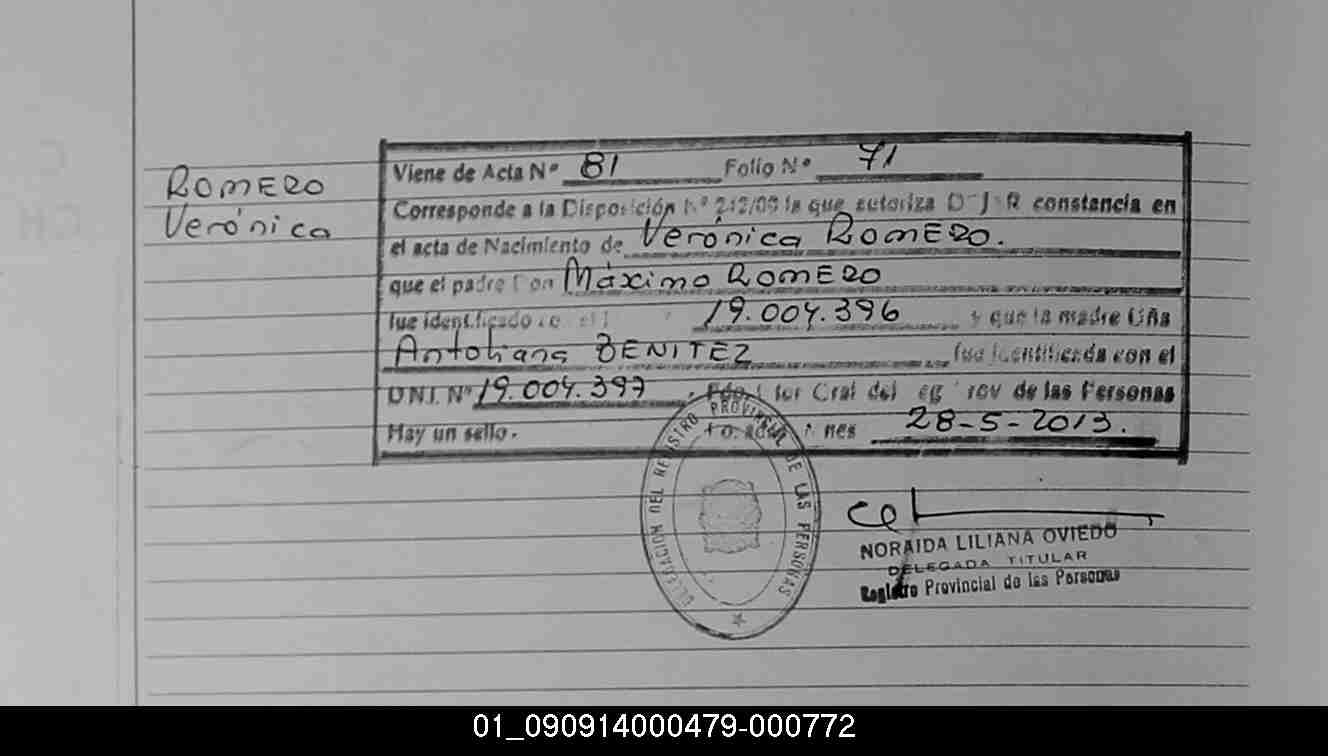 ROMERO
Verónica
Viene de Acta Nº 81 Folio Nº 71
Corresponde a la Disposición Nº 242/09 la que autoriza D J R constancia en
el acta de Nacimiento de Verónica ROMERO.
que el padre Don Máximo ROMERO
fue identificado 19.004.396 y que la madre Dña
Antoliana BENITEZ fue identificada con el
D.N.I. Nº 19.004.397 Gral del de las Personas
Hay un sello. 28-5-2013.
DELEGACION DEL REGISTRO PROVINCIAL DE LAS PERSONAS
NORAIDA LILIANA OVIEDO
DELEGADA TITULAR
Registro Provincial de las Personas
01_090914000479-000772